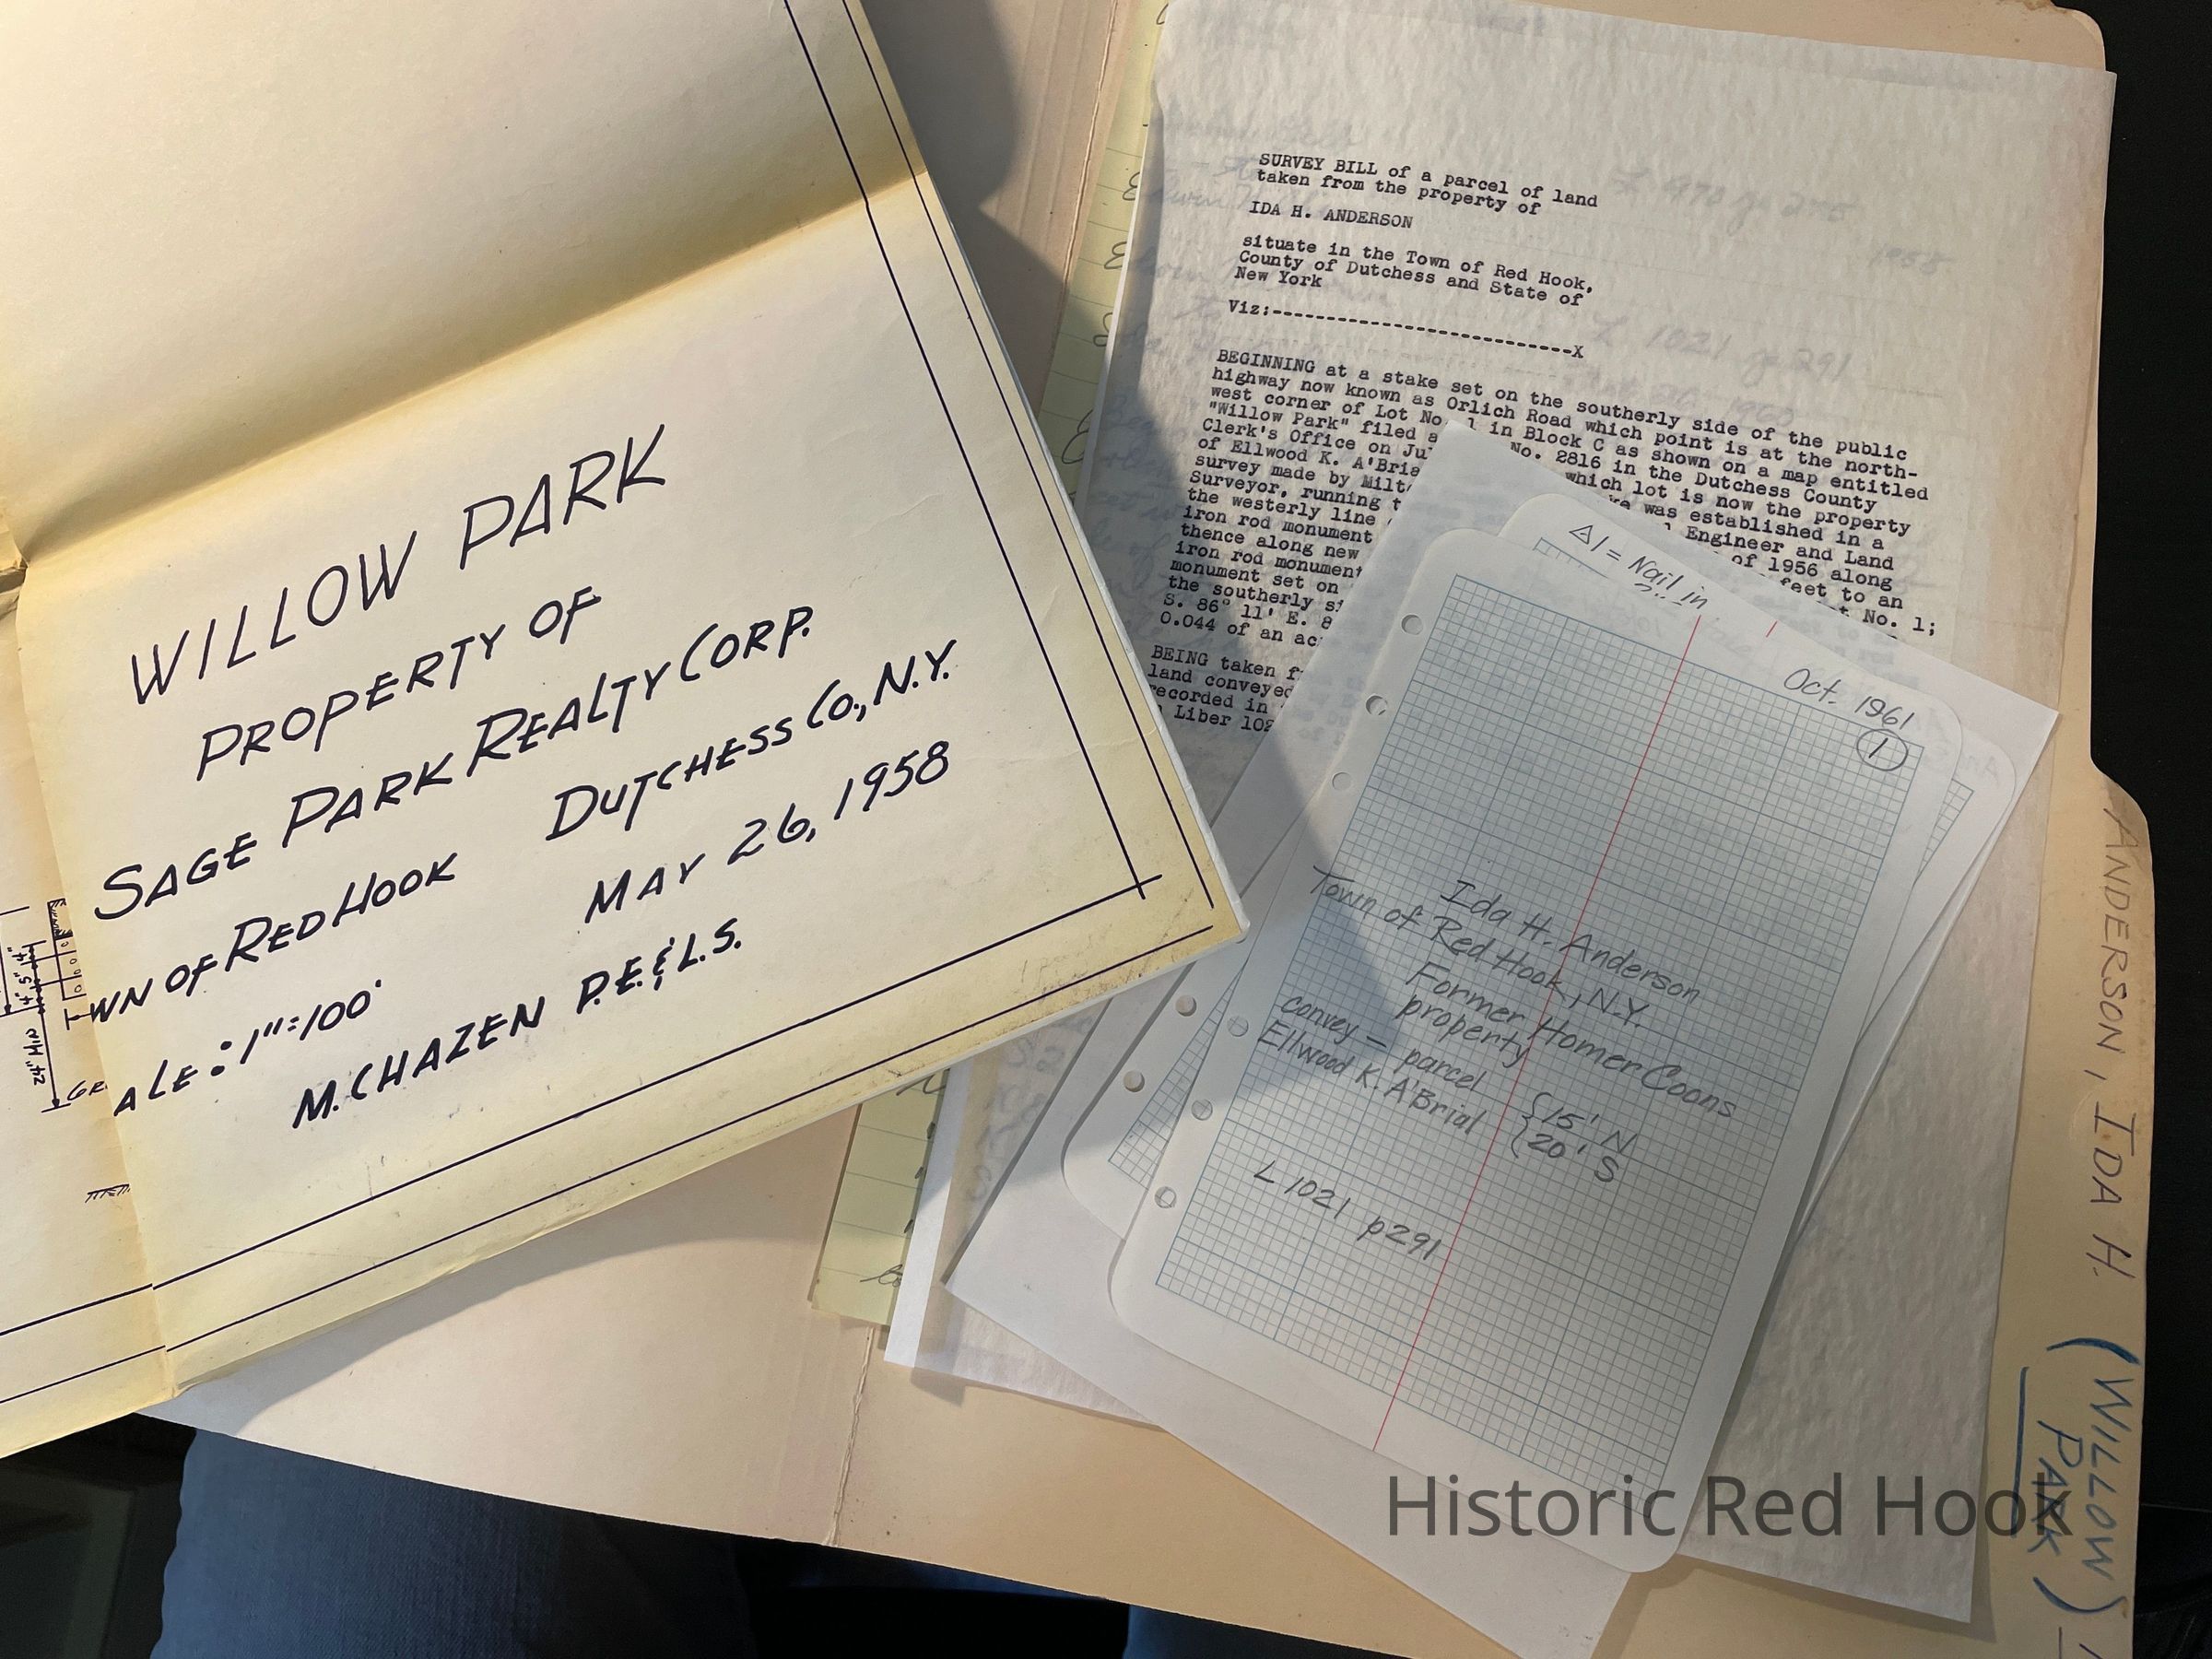 WILLOW PARK
PROPERTY OF
SAGE PARK REALTY CORP.
WN OF RED HOOK DUTCHESS CO., N.Y.
ALE: 1"=100' MAY 26, 1958
M. CHAZEN P.E. & L.S.
4" 5" 4"
24" MIN
SURVEY BILL of a parcel of land
taken from the property of
IDA H. ANDERSON
situate in the Town of Red Hook,
County of Dutchess and State of
New York
Viz:----------------------------X
BEGINNING at a stake set on the southerly side of the public
highway now known as Orlich Road which point is at the north-
west corner of Lot No. 1 in Block C as shown on a map entitled
"Willow Park" filed a No. 2816 in the Dutchess County
Clerk's Office on Ju which lot is now the property
of Ellwood K. A'Bria ke was established in a
survey made by Milt l Engineer and Land
Surveyor, running t of 1956 along
the westerly line feet to an
iron rod monument t No. 1;
thence along new
iron rod monument
monument set on
the southerly si
S. 86° 11' E. 8
0.044 of an ac
BEING taken f
land conveyed
recorded in
Liber 102
L 970 pg 275
1958
L 1021 pg 291
△1 = Nail in
Oct. 1961
1
Ida H. Anderson
Town of Red Hook, N.Y.
Former Homer Coons
property
convey – parcel {15' N
Ellwood K. A'Brial {20' S
L 1021 p291
ANDERSON, IDA H. (WILLOW
PARK)
Historic Red Hook